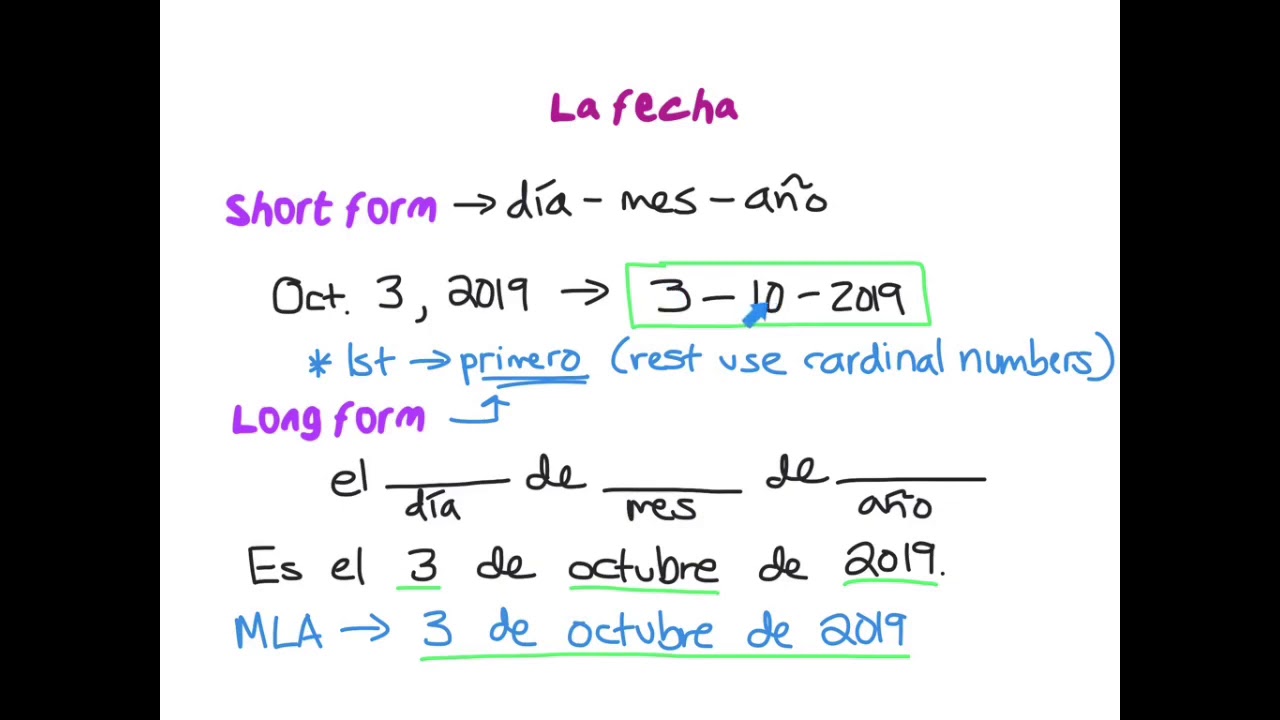 La fecha
Short form → día - mes - año
Oct. 3, 2019 → 3 - 10 - 2019
* 1st → primero (rest use cardinal numbers)
Long form
el ____ de ____ de ____
día mes año
Es el 3 de octubre de 2019.
MLA → 3 de octubre de 2019